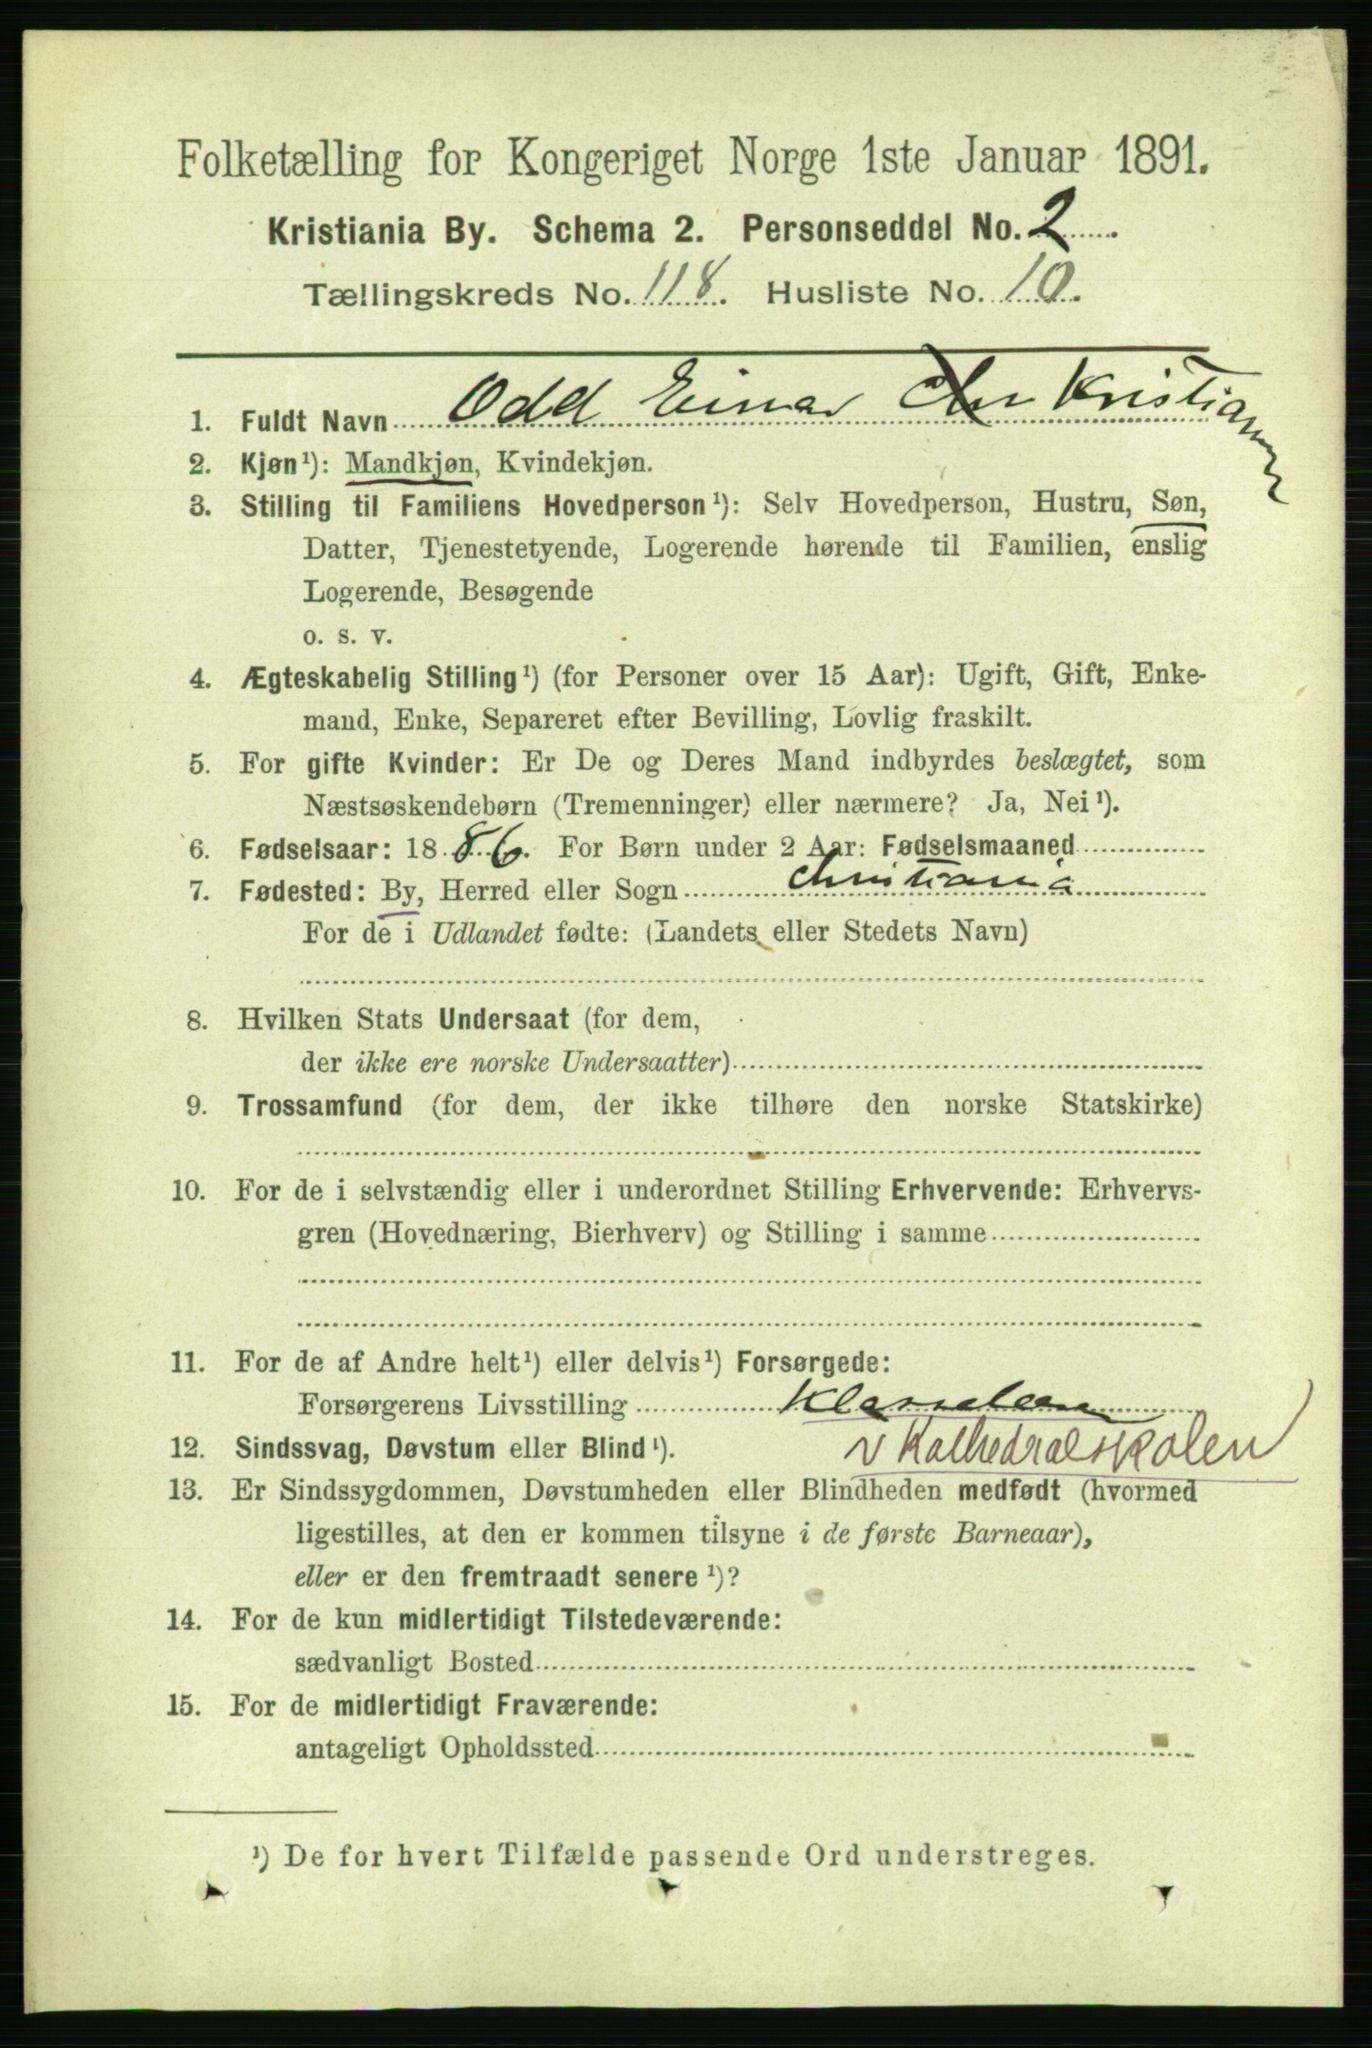 Folketælling for Kongeriget Norge 1ste Januar 1891.
Kristiania By. Schema 2. Personseddel No. 2.
Tællingskreds No. 118. Husliste No. 10.
1. Fuldt Navn Odd Einar Chr Kristiansen
2. Kjøn¹): Mandkjøn, Kvindekjøn.
3. Stilling til Familiens Hovedperson¹): Selv Hovedperson, Hustru, Søn,
Datter, Tjenestetyende, Logerende hørende til Familien, enslig
Logerende, Besøgende
o. s. v.
4. Ægteskabelig Stilling¹) (for Personer over 15 Aar): Ugift, Gift, Enke-
mand, Enke, Separeret efter Bevilling, Lovlig fraskilt.
5. For gifte Kvinder: Er De og Deres Mand indbyrdes beslægtet, som
Næstsøskendebørn (Tremenninger) eller nærmere? Ja, Nei¹).
6. Fødselsaar: 1886. For Børn under 2 Aar: Fødselsmaaned
7. Fødested: By, Herred eller Sogn Christiania
For de i Udlandet fødte: (Landets eller Stedets Navn)
8. Hvilken Stats Undersaat (for dem,
der ikke ere norske Undersaatter)
9. Trossamfund (for dem, der ikke tilhøre den norske Statskirke)
10. For de i selvstændig eller i underordnet Stilling Erhvervende: Erhvervs-
gren (Hovednæring, Bierhverv) og Stilling i samme
11. For de af Andre helt¹) eller delvis¹) Forsørgede:
Forsørgerens Livsstilling
12. Sindssvag, Døvstum eller Blind¹). v Kathedralskolen
13. Er Sindssygdommen, Døvstumheden eller Blindheden medfødt (hvormed
ligestilles, at den er kommen tilsyne i de første Barneaar),
eller er den fremtraadt senere¹)?
14. For de kun midlertidigt Tilstedeværende:
sædvanligt Bosted
15. For de midlertidigt Fraværende:
antageligt Opholdssted
¹) De for hvert Tilfælde passende Ord understreges.